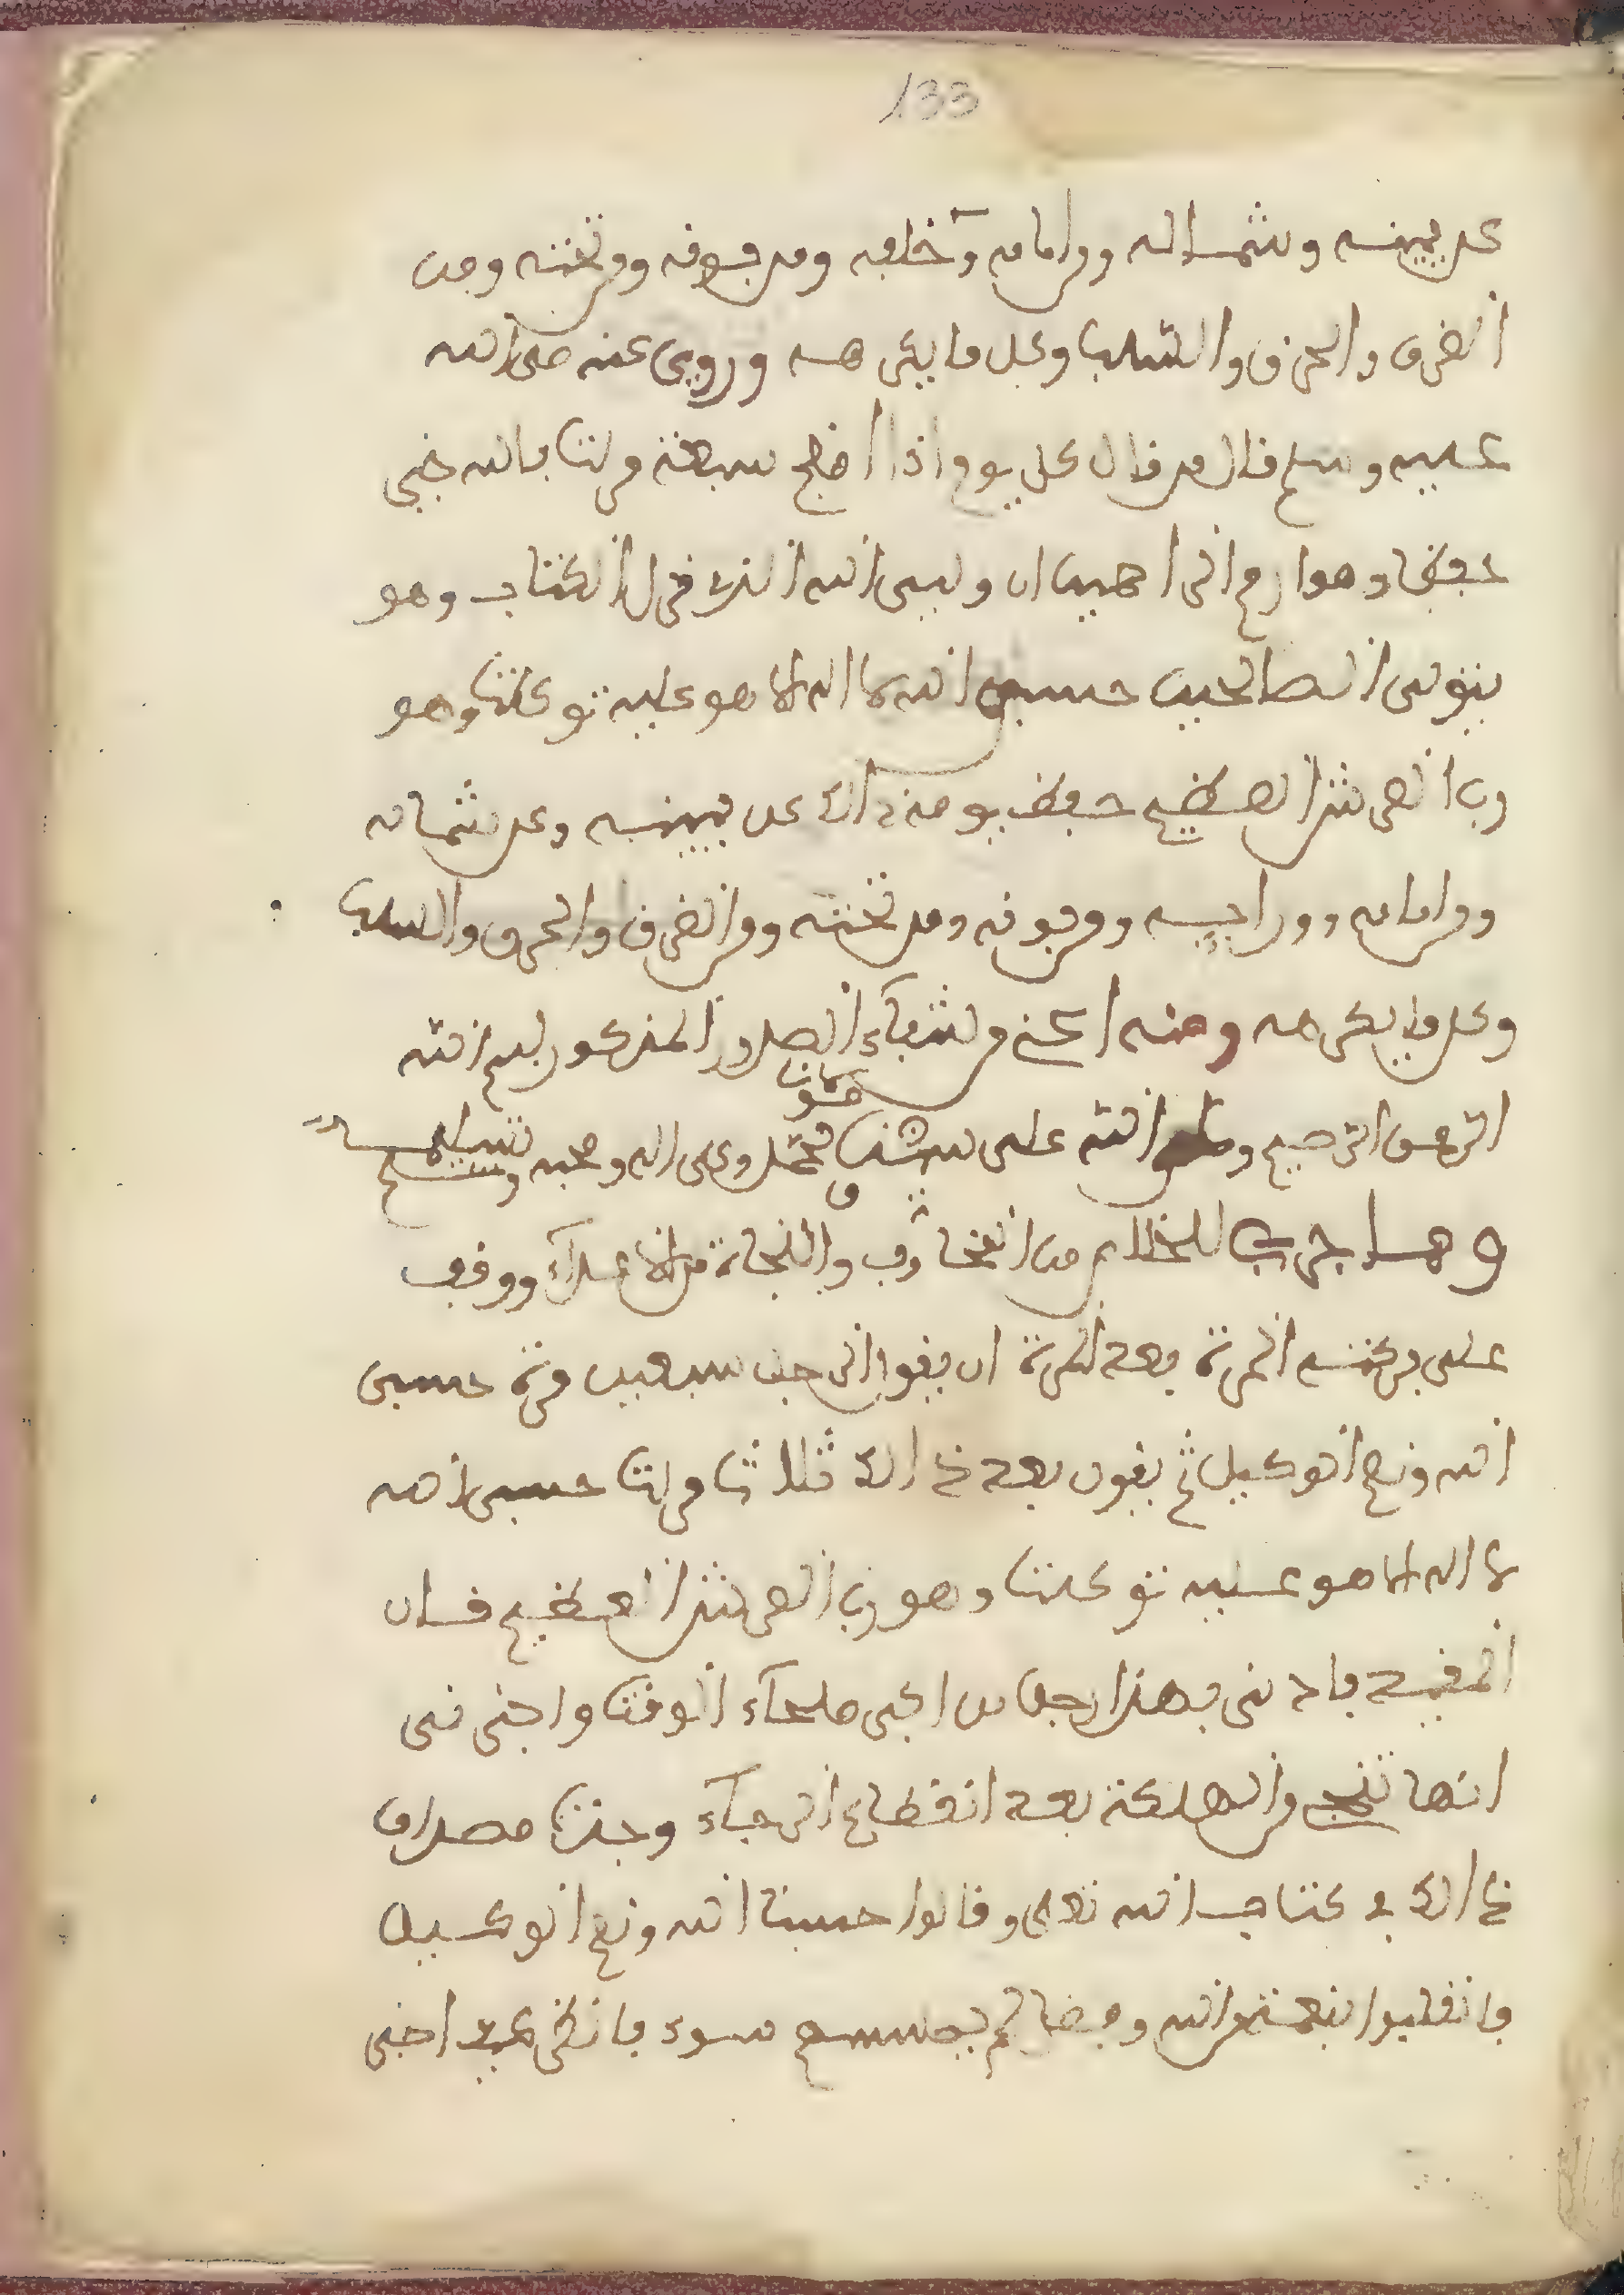 133
عن يمينه وشماله ومن امامه وخلفه ومن فوقه ومن تحته ومن
الغرق والحرق والسلب وكل ما يكرهه وروي عنه صلى الله
عليه وسلم قال من قال كل يوم اذا اصبح سبعة مرات بالله خير
حفظا وهو ارحم الراحمين ان وليي الله الذي نزل الكتاب وهو
يتولى الصالحين حسبي الله لا اله الا هو عليه توكلت وهو
رب العرش العظيم حفظ يومه ذالك عن يمينه وعن شماله
ومن امامه وورايه ومن فوقه ومن تحته ومن الغرق والحرق والسلب
وكل ما يكرهه ومنه اعني من شفاء الصدور المذكور بسم الله
الرحمن الرحيم وصلى الله على سيدنا ومولانا محمد وعلى اله وصحبه وسلم تسليما
ومما جرب للخلاص من المخاوف والنجاة من الاعداء ووقف
على بركته المرة بعد المرة ان يقول الرجل سبعين مرة حسبي
الله ونعم الوكيل ثم يقول بعد ذالك ثلاثا مرات حسبي الله
لا اله الا هو عليه توكلت وهو رب العرش العظيم قال
المقيد فادني بهذا رجل من اكبر صلحاء الوقت واخبرني
انها تنجي من الهلكة بعد انقطاع الرجاء وجدت مصداق
ذالك في كتاب الله تعلى وقالوا حسبنا الله ونعم الوكيل
فانقلبوا بنعمة من الله وفضل لم يمسسهم سوء فانظر كيف اخبر